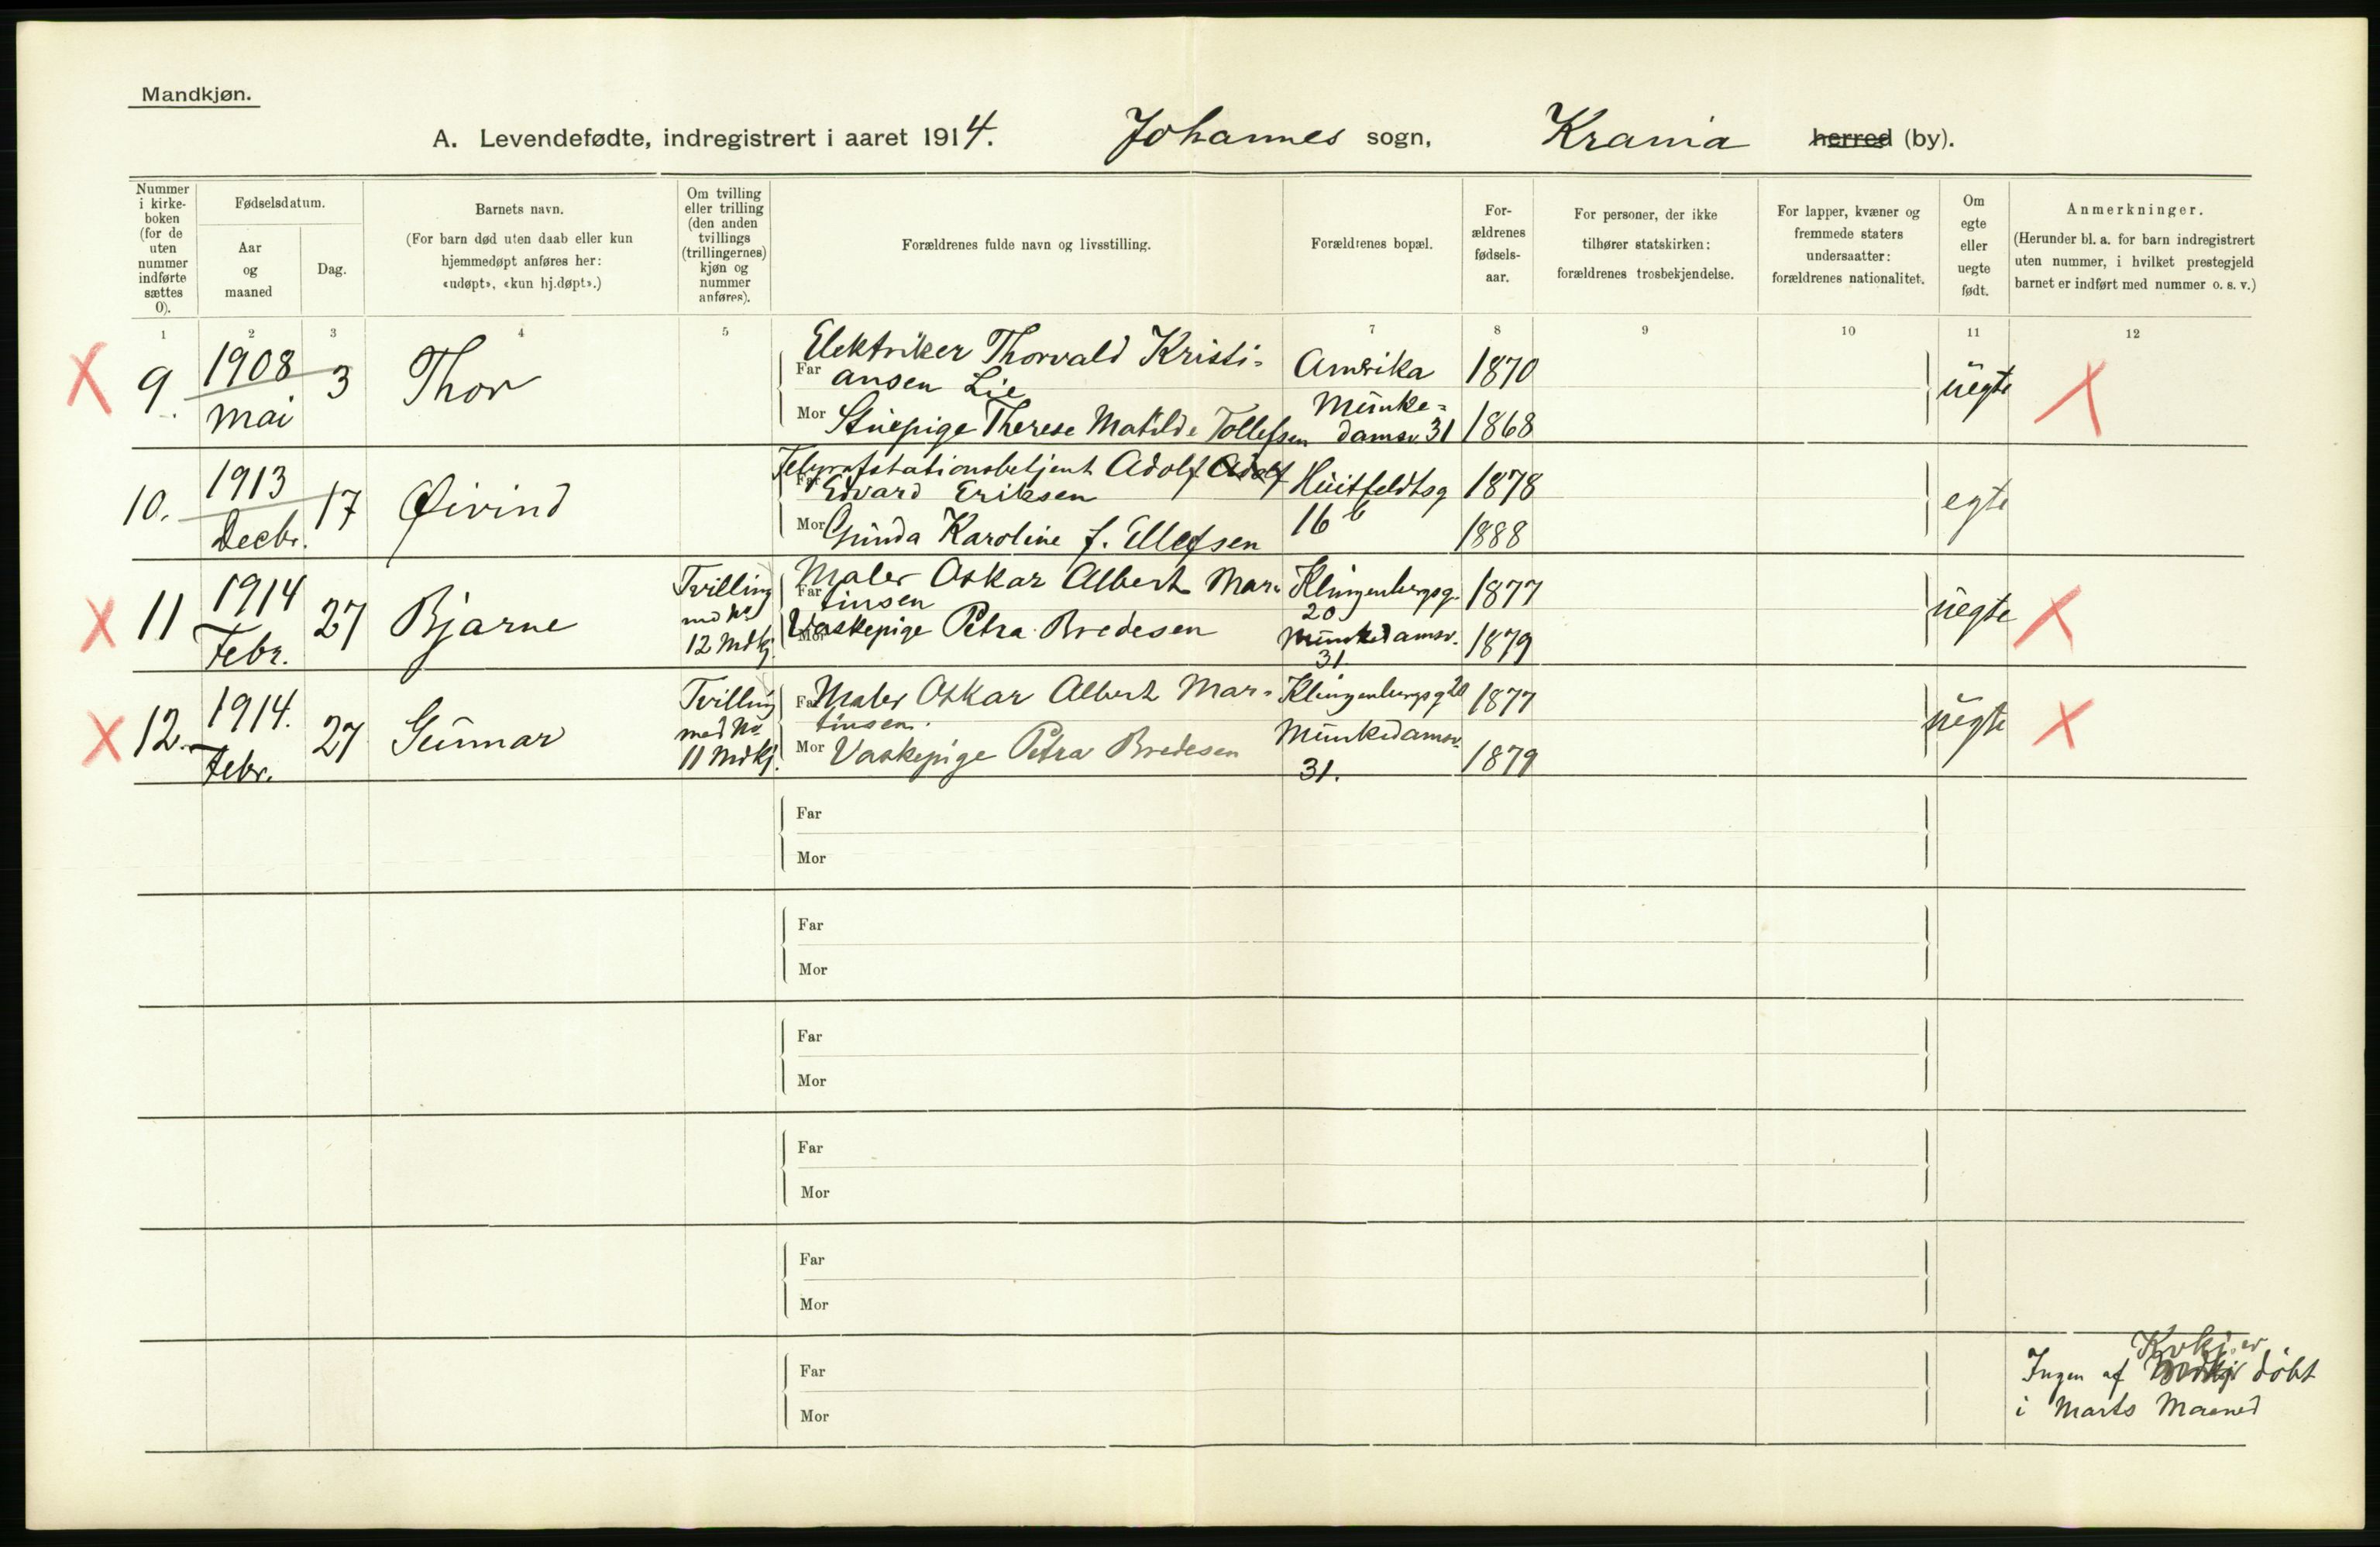 Mandkjøn.
A. Levendefødte, indregistrert i aaret 1914. Johannes sogn, Krania herred (by).
Nummer i kirke-boken (for de uten nummer indførte sættes 0).
Fødselsdatum.
Aar og maaned
Dag.
Barnets navn.
(For barn død uten daab eller kun hjemmedøpt anføres her: «udøpt», «kun hj.døpt».)
Om tvilling eller trilling (den anden tvillings (trillingernes) kjøn og nummer anføres).
Forældrenes fulde navn og livsstilling.
Forældrenes bopæl.
For-ældrenes fødsels-aar.
For personer, der ikke tilhører statskirken: forældrenes trosbekjendelse.
For lapper, kvæner og fremmede staters undersaatter: forældrenes nationalitet.
Om egte eller uegte født.
Anmerkninger.
(Herunder bl. a. for barn indregistrert uten nummer, i hvilket prestegjeld barnet er indført med nummer o. s. v.)
1 2 3 4 5 7 8 9 10 11 12
X 9. 1908 Mai 3 Thor
Far Elektriker Thorvald Kristi-
ansen Lie Amerika 1870
Mor Stuepige Therese Matilde Tollefsen Munke-
damsv. 31 1868
uegte X
10. 1913 Decbr. 17 Øivind
Far Telegrafstationsbetjent Adolf Adolf
Edvard Eriksen Huitfeldtsg 1878
Mor Gunda Karoline f. Ellefsen 16 b 1888
egte
X 11 1914 Febr. 27 Bjarne
Tvilling
med No
12 Mdkj.
Far Maler Oskar Albert Mar-
tinsen Klingenbergsg. 20 1877
Mor Vaskepige Petra Bredesen Munkedamsv. 31 1879
uegte X
X 12. 1914. Febr. 27 Gunnar
Tvilling
med No
11 Mdkj.
Far Maler Oskar Albert Mar-
tinsen. Klingenbergsg 20 1877
Mor Vaskepige Petra Bredesen Munkedamsv. 31. 1879
uegte X
Far
Mor
Far
Mor
Far
Mor
Far
Mor
Far
Mor
Far
Mor
Kvkj. er
Ingen af døbt
i Marts Maaned